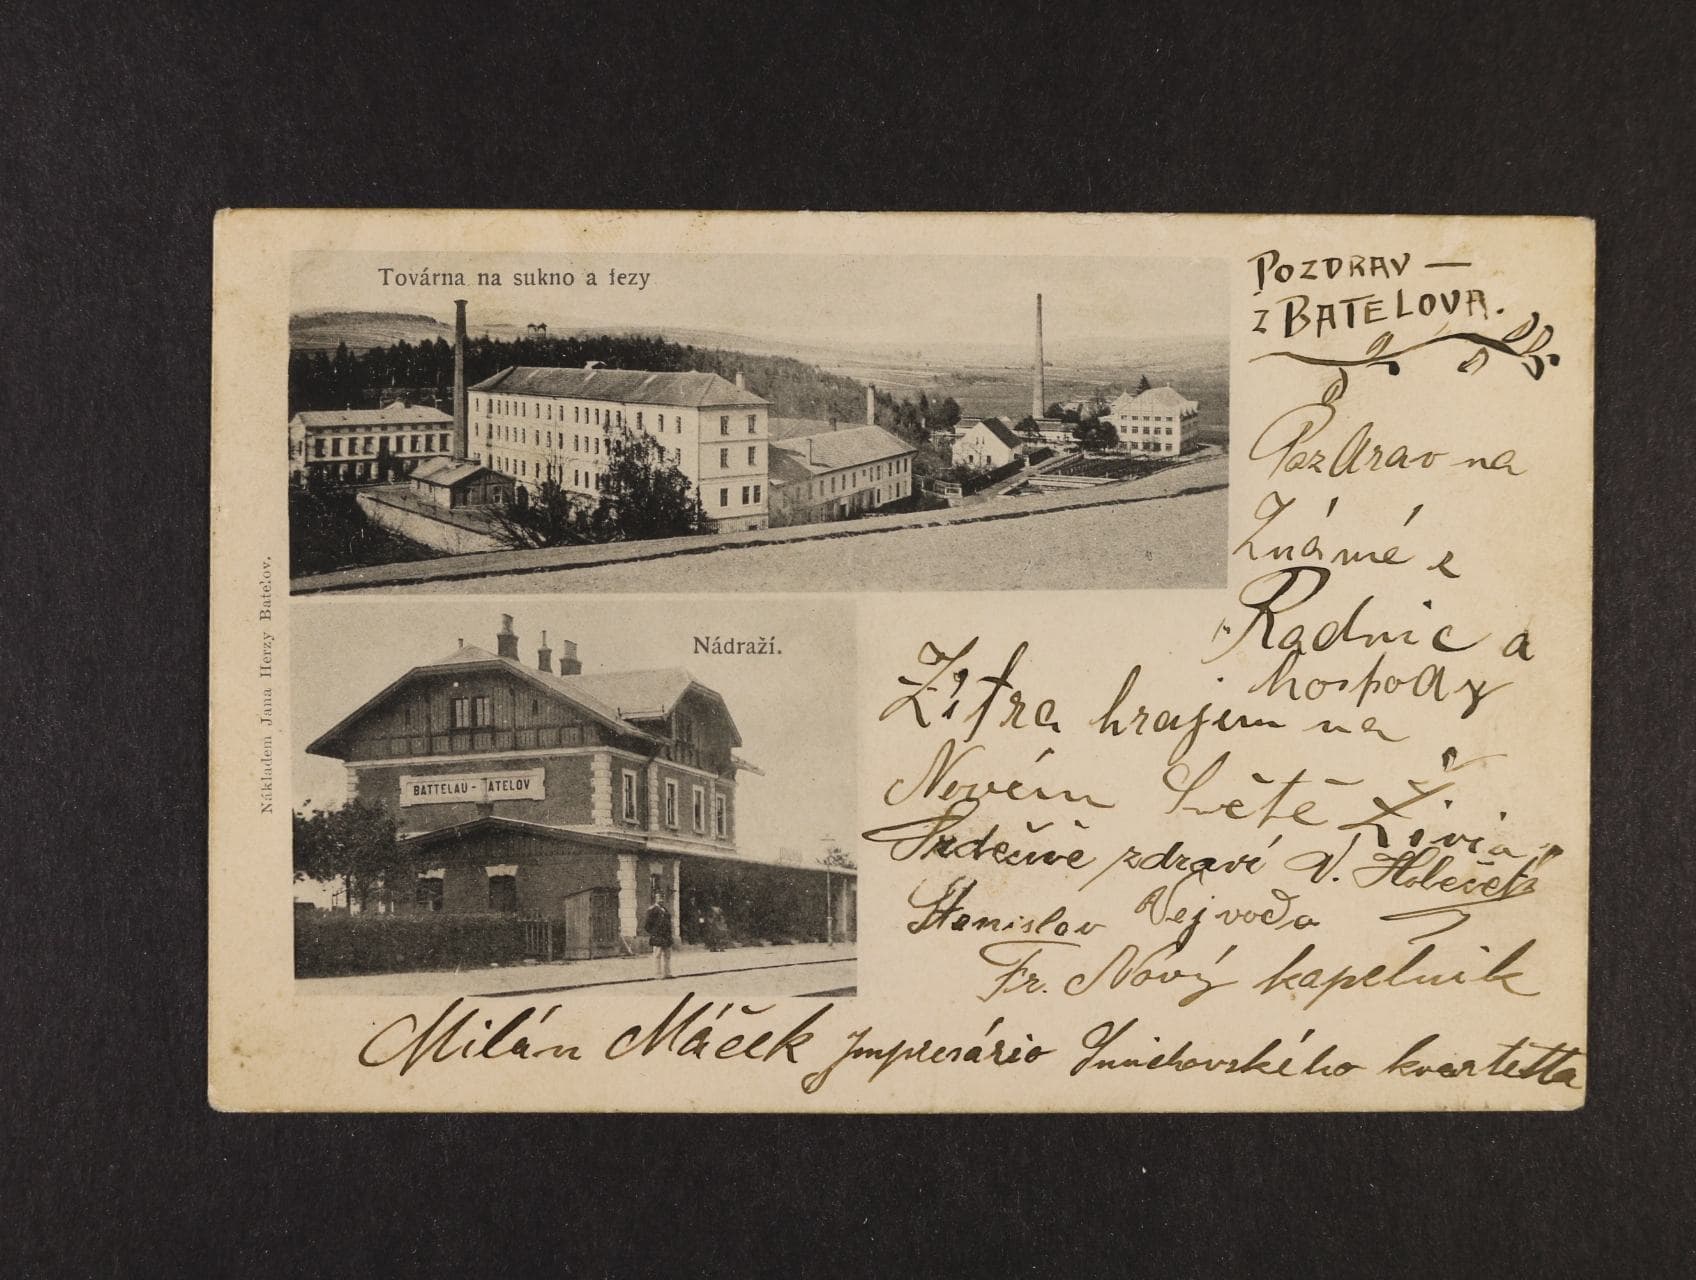 Továrna na sukno a fezy
POZDRAV —
z BATELOVA.
Pozdrav na
Známé z
Radnic a
hospody
Nádraží.
BATTELAU - BATELOV
Nákladem Jana Herzy Batelov.
Zítra hrajem na
Novém Světě Živio
Srdečně zdraví V.
Stanislav Vejvoda
Fr. Nový kapelník
Milán Máček Impresário Smíchovského kvartetta